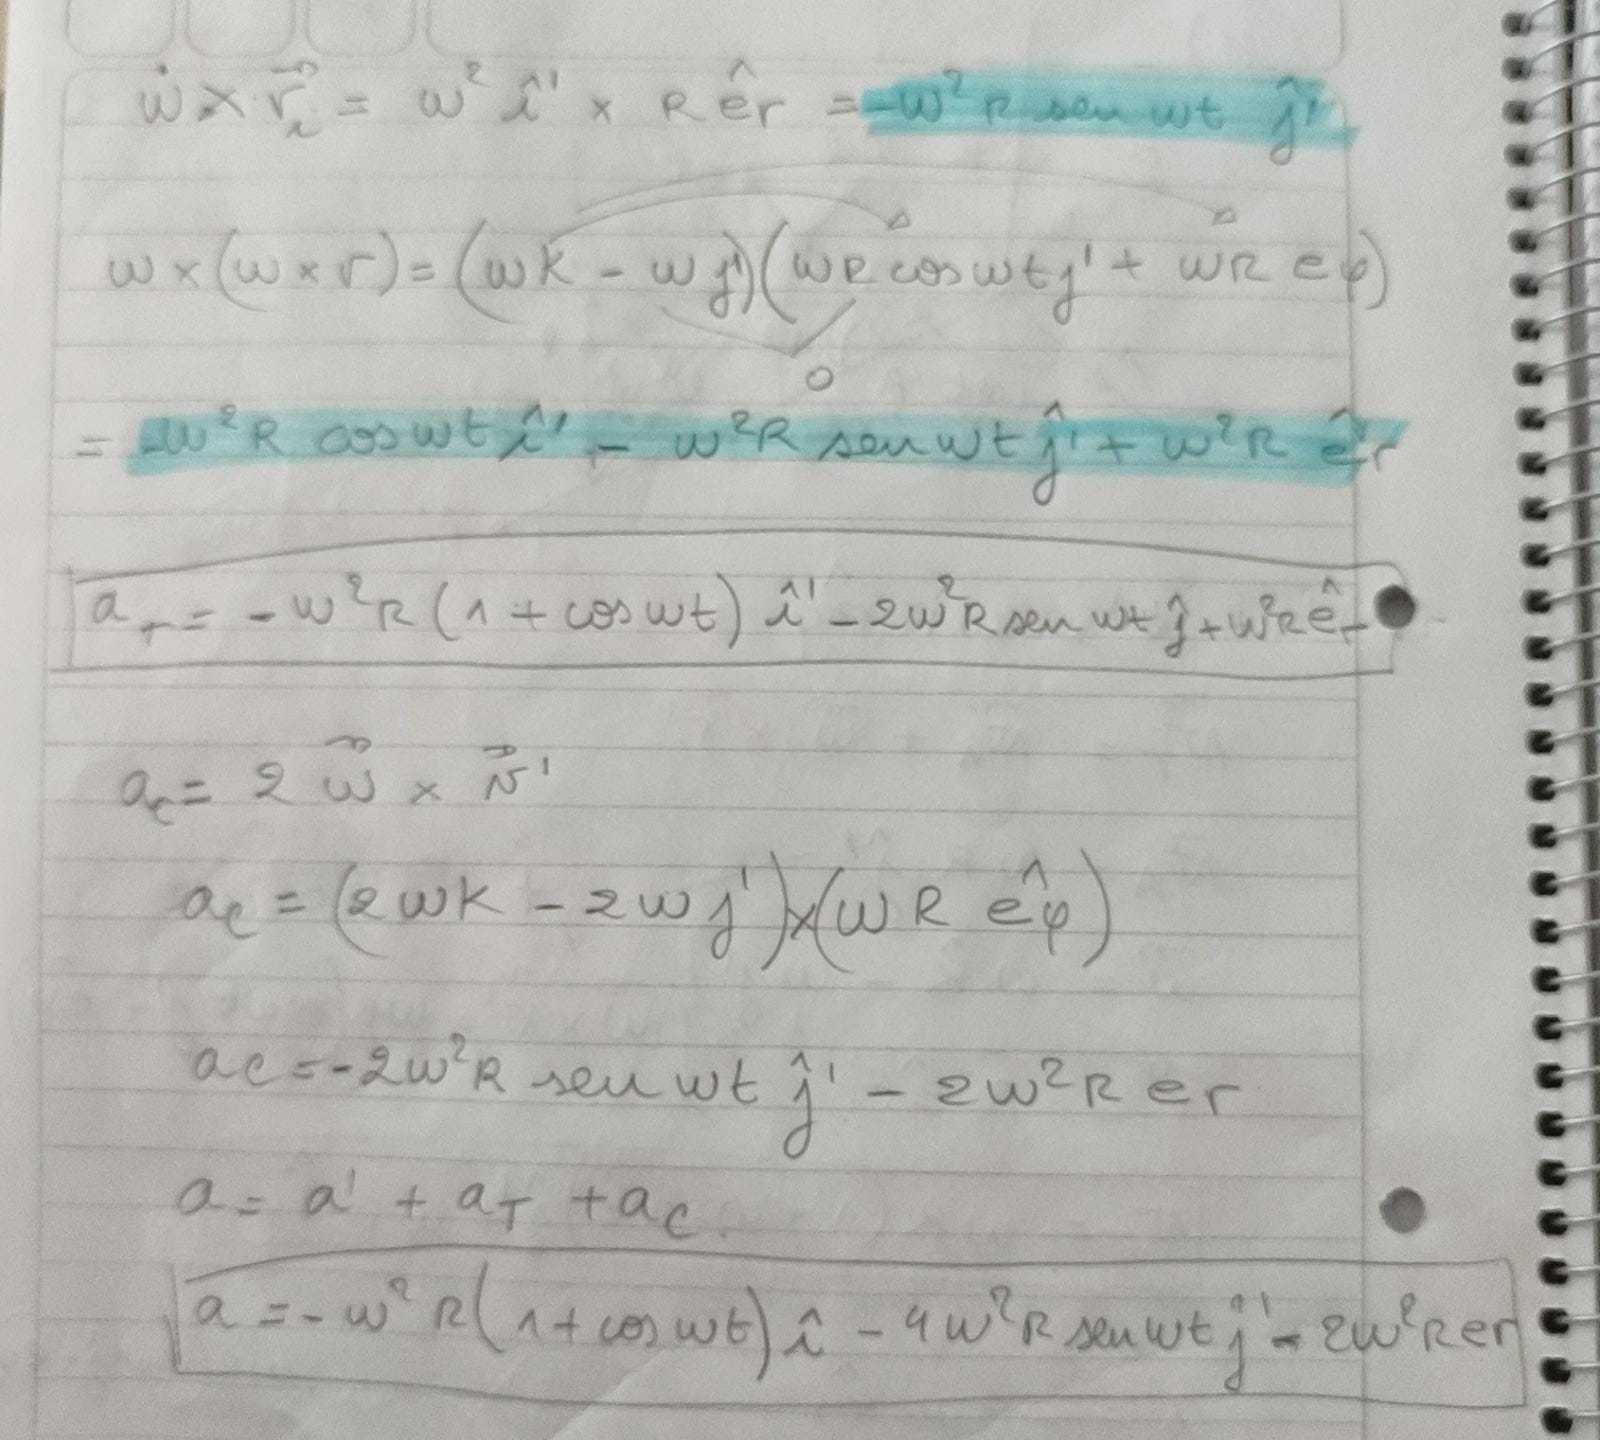 ẇ × r⃗ᵢ = w² î' × R êr = -w² R sen wt ĵ'
w × (w × r) = (wk - wj')(wR cos wt j' + wR eφ)
0
= -w² R cos wt î' - w²R sen wt ĵ' + w²R êr
a_T = - w²R (1 + cos wt) î' - 2w²R sen wt ĵ + w²R êr
a_c = 2 w⃗ × v⃗'
a_c = (2wk - 2wj') × (wR êφ)
a_c = -2w²R sen wt ĵ' - 2w²R er
a = a' + a_T + a_c
a = - w² R (1 + cos wt) î - 4w²R sen wt ĵ' - 2w²R er